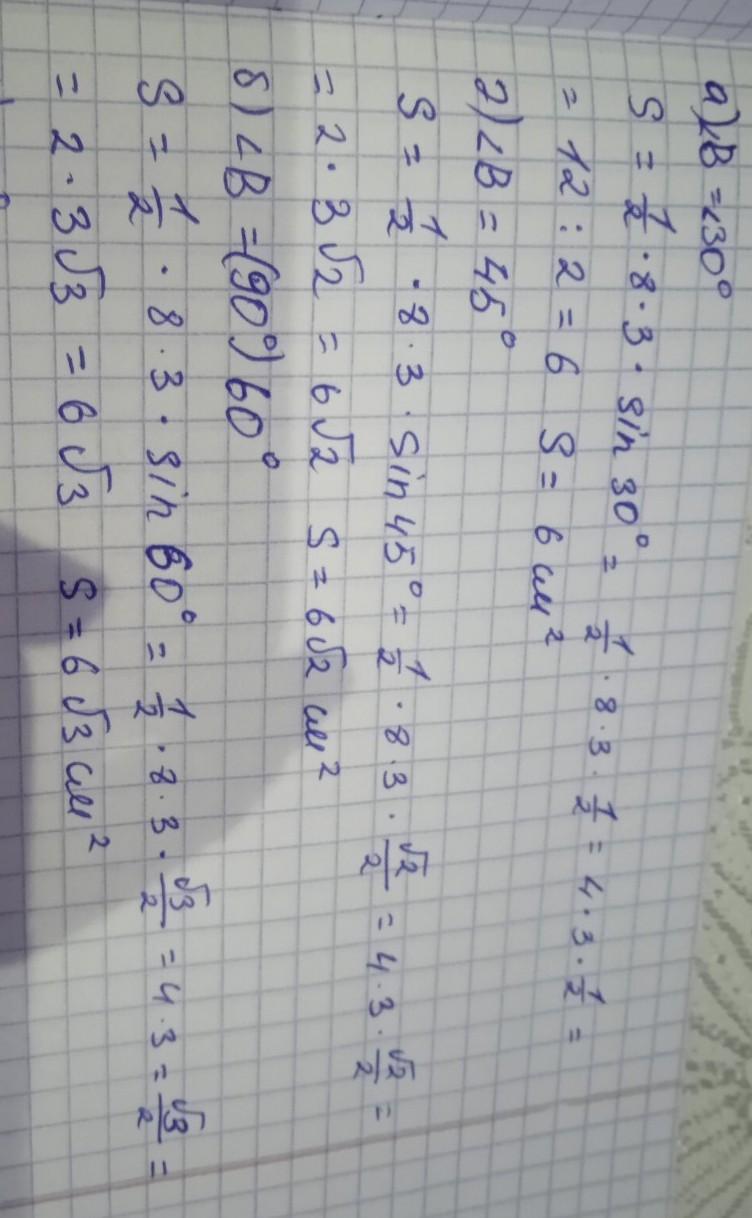 а) ∠B = ∠30°
S = 1/2 · 8 · 3 · sin 30° = 1/2 · 8 · 3 · 1/2 = 4 · 3 · 1/2 =
= 12 : 2 = 6 S = 6 см²
2) ∠B = 45°
S = 1/2 · 8 · 3 · sin 45° = 1/2 · 8 · 3 · √2/2 = 4 · 3 · √2/2 =
= 2 · 3√2 = 6√2 S = 6√2 см²
б) ∠B = (90°) 60°
S = 1/2 · 8 · 3 · sin 60° = 1/2 · 8 · 3 · √3/2 = 4 · 3 = √3/2 =
= 2 · 3√3 = 6√3 S = 6√3 см²